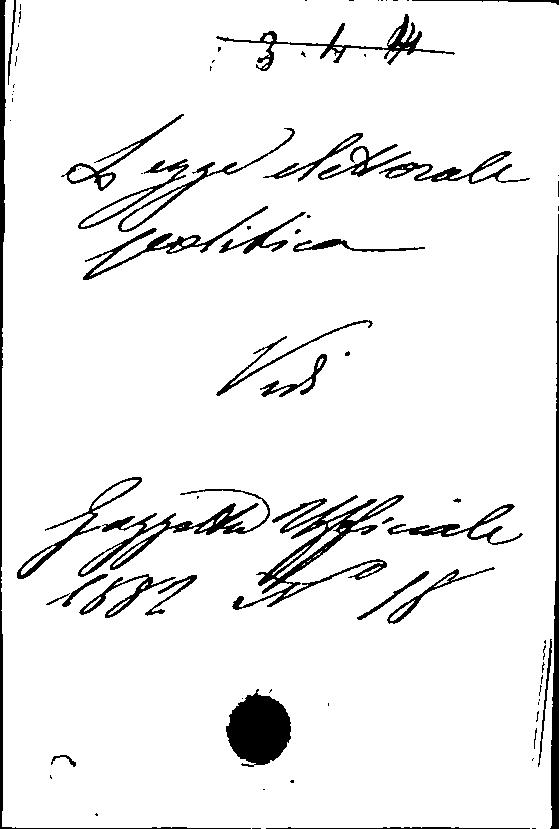 3. 4. 14
Legge elettorale
politica
Vedi
Gazzetta Ufficiale
1882 N° 18